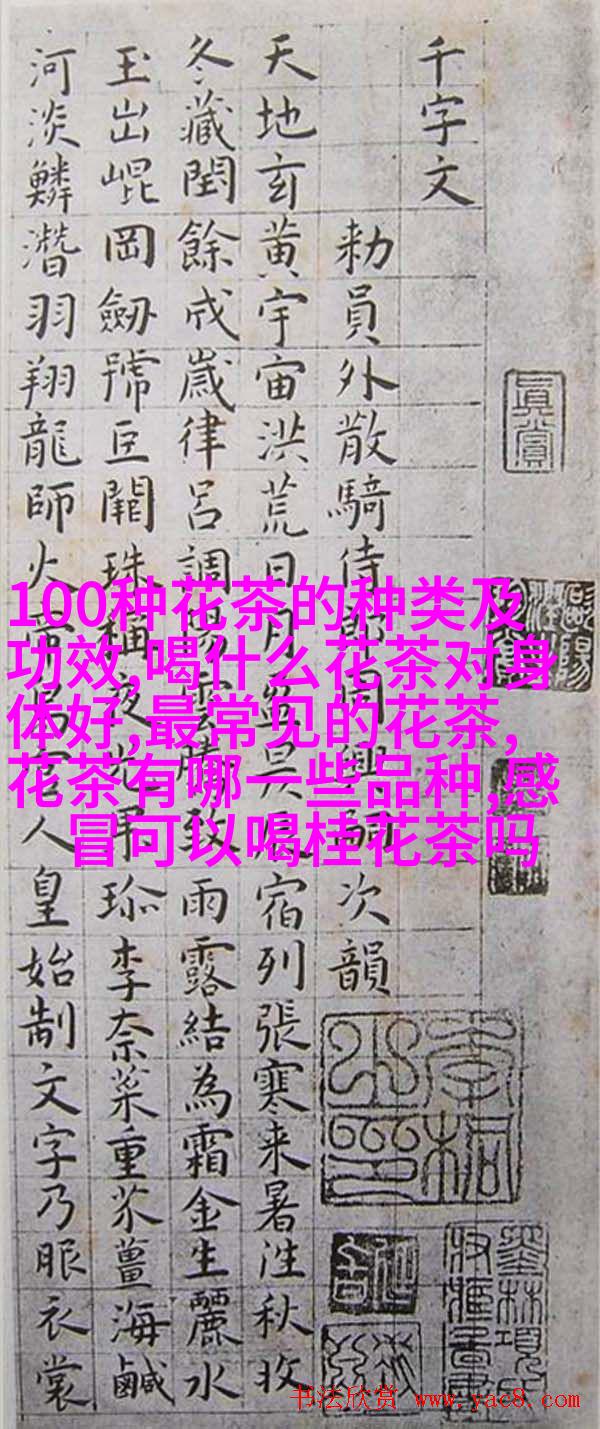 千字文
勑員外散騎侍郎周興嗣次韻
天地玄黃宇宙洪荒日月盈昃辰宿列張寒来暑往秋收
冬藏閏餘成歲律呂調陽雲騰致雨露結為霜金生麗水
玉出崐岡劒號巨闕珠稱夜光果珎李柰菜重芥薑海鹹
河淡鱗潛羽翔龍師火帝鳥官人皇始制文字乃服衣裳
真賞
100种花茶的种类及
功效,喝什么花茶对身
体好,最常见的花茶,
花茶有哪一些品种,感
冒可以喝桂花茶吗
书法欣赏 www.yac8.com